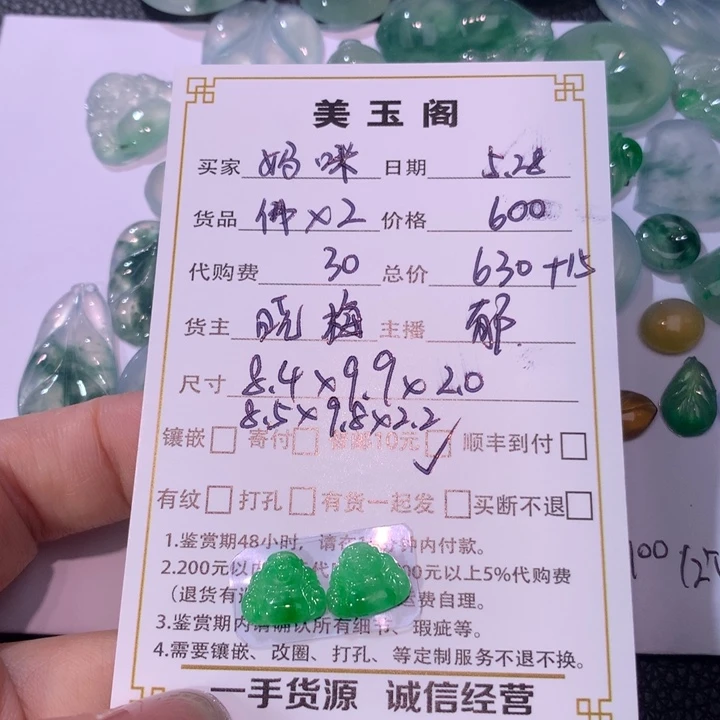 美玉阁
买家 妈咪 日期 5.28
货品 佛×2 价格 600
代购费 30 总价 630+15
货主 晓梅 主播 郁
尺寸 8.4×9.9×2.0
8.5×9.8×2.2
镶嵌□ 寄付□ 10元□✓ 顺丰到付□
有纹□ 打孔□ 有货一起发□ 买断不退□
1.鉴赏期48小时，请在 钟内付款。
2.200元以 代 00元以上5%代购费
（退货有 运费自理。
3.鉴赏期内请确认所有细节、瑕疵等。
4.需要镶嵌、改圈、打孔、等定制服务不退不换。
一手货源 诚信经营
100